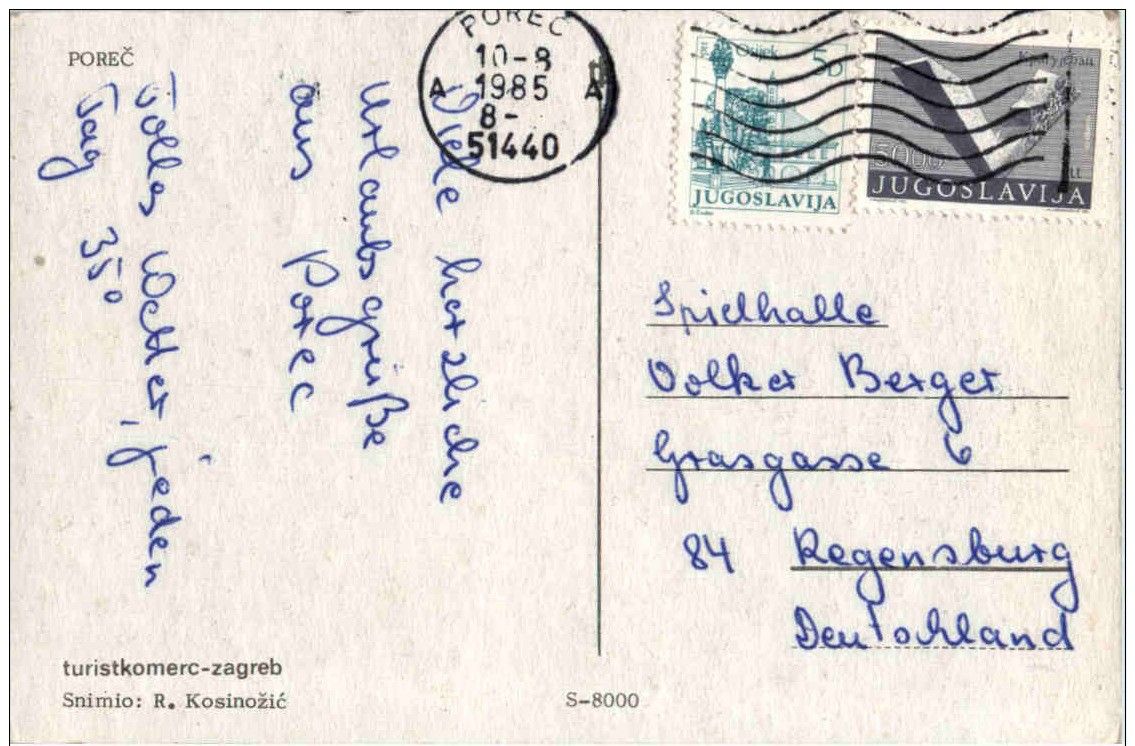 POREČ
Viele herzliche
Urlaubsgrüße
aus Porec
Tolles Wetter, jeden
Tag 35°
POREČ
10-8
1985
8-
51440
A A
Osijek
5D
JUGOSLAVIJA
JUGOSLAVIJA
Spielhalle
Volker Berger
Grasgasse 6
84 Regensburg
Deutschland
turistkomerc-zagreb
Snimio: R. Kosinožić
S-8000